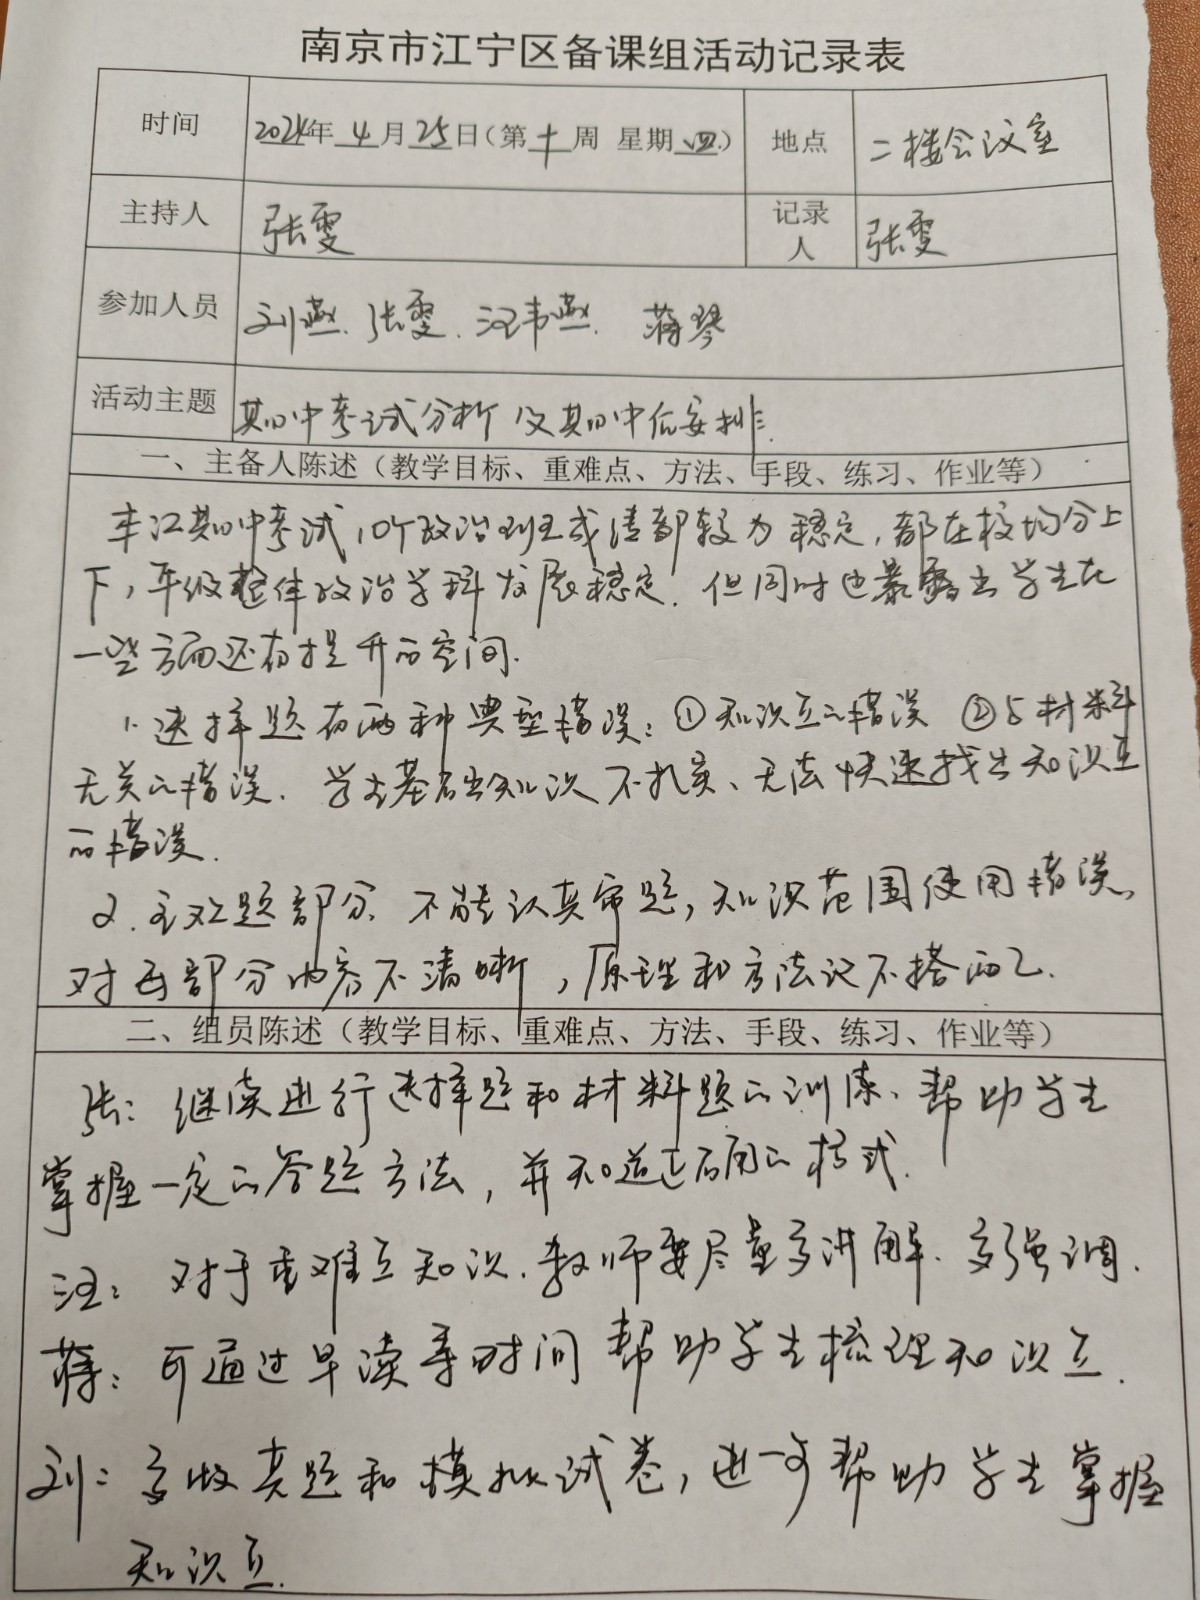 南京市江宁区备课组活动记录表
时间 2024年 4 月 25 日(第 十 周 星期 四) 地点 二楼会议室
主持人 张雯 记录人 张雯
参加人员 刘燕、张雯、汪韦燕、蒋琴
活动主题 期中考试分析及期中后安排
一、主备人陈述（教学目标、重难点、方法、手段、练习、作业等）
期中考试,10个政治班主成绩都较为稳定,都在校均分上
下,年级整体政治学科发展稳定.但同时也暴露出学生在
一些方面还有提升的空间.
1.选择题有两种典型错误:①知识点的错误 ②与材料
无关的错误.学生基础知识不扎实、无法快速找出知识点
的错误.
2.主观题部分.不能认真审题,知识范围使用错误、
对各部分内容不清晰,原理和方法论不搭而已.
二、组员陈述（教学目标、重难点、方法、手段、练习、作业等）
张:继续进行选择题和材料题的训练、帮助学生
掌握一定的答题方法,并知道正确的格式.
汪:对于重难点知识.教师要尽量多讲解.多强调.
蒋:可通过早读等时间帮助学生梳理知识点.
刘:多做真题和模拟试卷,进一步帮助学生掌握
知识点.